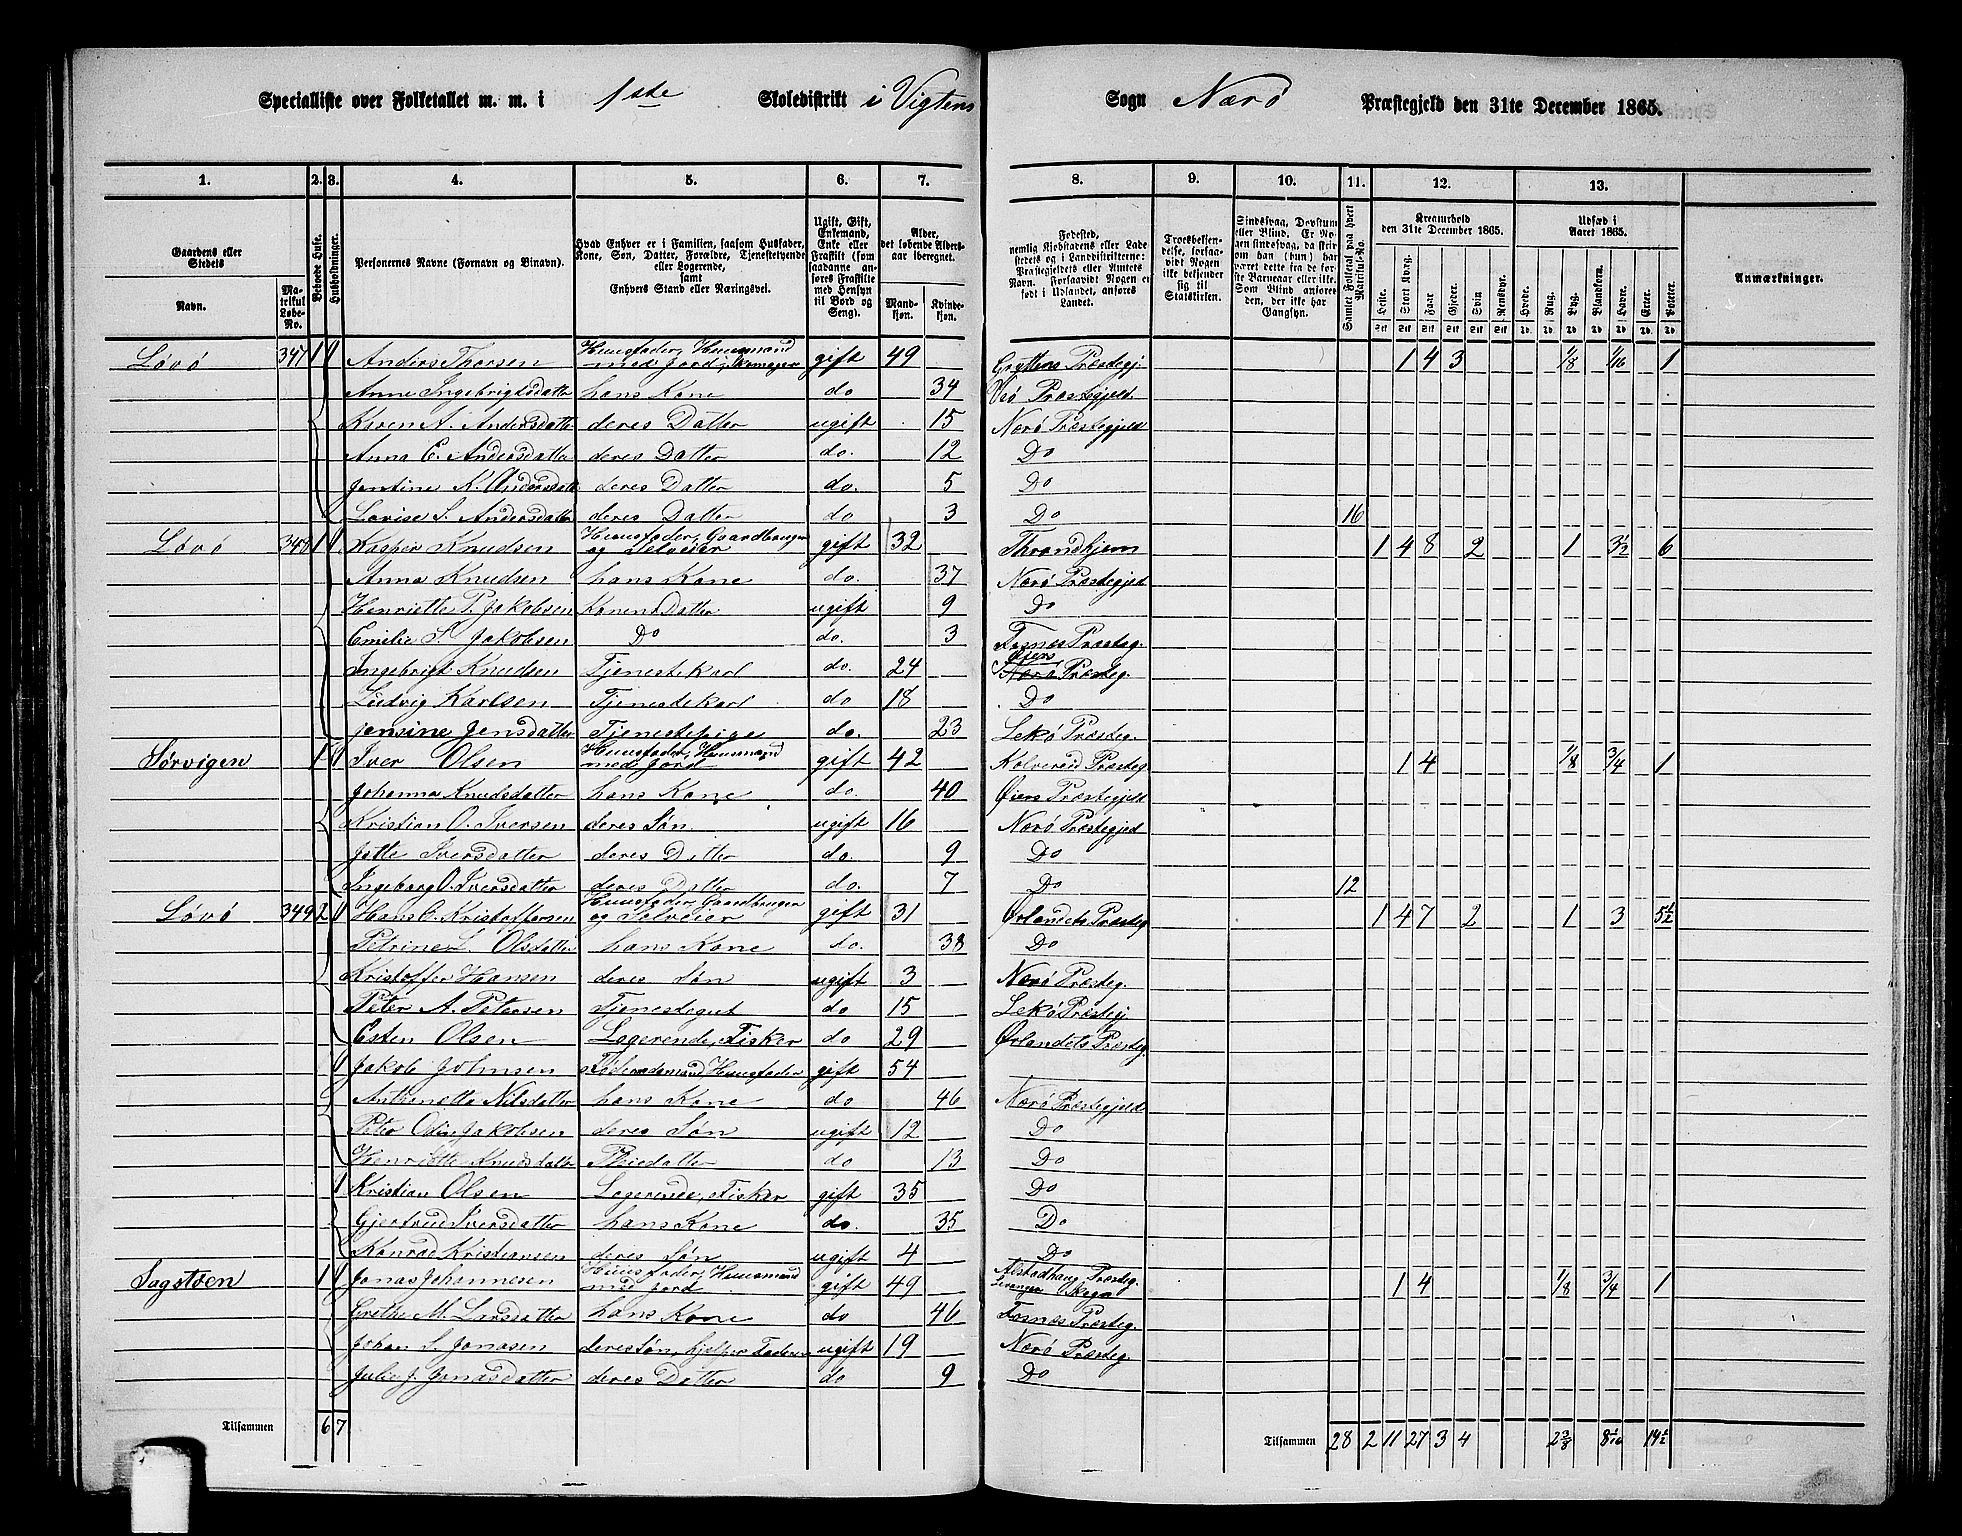 Specialliste over Folketallet m. m. i 1ste Skoledistrikt i Vigtens Sogn Nærø Præstegjeld den 31te December 1865.
1. 2. 3. 4. 5. 6. 7. 8. 9. 10. 11. 12. 13.
Gaardens eller Stedets Navn. Matrikul Løbe-No. Beboede Huse. Husholdninger. Personernes Navne (Fornavn og Binavn). Hvad Enhver er i Familien, saasom Husfader, Kone, Søn, Datter, Forældre, Tjenestetyende eller Logerende, samt Enhvers Stand eller Næringsvei. Ugift, Gift, Enkemand, Enke eller Fraskilt (som saadanne anføres Fraskilte med Hensyn til Bord og Seng). Alder, det løbende Alders-aar iberegnet. Mand-kjøn. Kvinde-kjøn. Fødested, nemlig Kjøbstadens eller Ladestedets og i Landdistrikterne: Præstegjeldets eller Amtets Navn. Forsaavidt Nogen er født i Udlandet, anføres Landet. Troesbekjendelse, forsaavidt Nogen ikke bekjender sig til Statskirken. Sindssvag, Døvstum eller Blind. Samlet Folketal paa hvert Matrikul-No. Kreaturhold den 31te December 1865. Heste. Stort Kvæg. Faar. Gjeder. Svin. Rensdyr. Udsæd i Aaret 1865. Hvede. Rug. Byg. Blandkorn. Havre. Erter. Poteter. Anmærkninger.
Løvø 347 1 1 Anders Thorsen Huusfader, Huusmand med Jord, Skomager gift 49 Gryttens Præstegj. 1 4 3 1/8 1/16 1
Anne Ingebrigtsdatter hans Kone do 34 Veø Præstegjeld.
Karen A. Andersdatter deres Datter ugift 15 Nærø Præstegjeld
Anna E. Andersdatter deres Datter do. 12 Do
Jentine K. Andersdatt deres Datter do. 5 Do
Lovise S. Andersdatter deres Datter do 3 Do 16
Løvø 348 1 1 Kasper Knudsen Huusfader, Gaardbruger og Selveier gift 32 Throndhjem 1 4 8 2 1 3 1/2 6
Anna Knudsen hans Kone do. 37 Nærø Præstegjed
Henriette P. Jakobsen Konens Datter ugift 9 Do
Emilie S. Jakobsen Do do. 3 Fosnes Præsteg.
Ingebrigt Knudsen Tjenestekarl do. 24 Øiens Nærø Præsteg.
Ludvig Karlsen Tjenestekarl do 18 Do
Jensine Jensdatter Tjenestepige do. 23 Lekø Præsteg.
Sørvigen 1 1 Iver Olsen Huusfader, Huusmand med Jord gift 42 Kolvereid Præsteg 1 4 1/8 3/4 1
Johanna Knudsdatter hans Kone do. 40 Øiens Præstegjeld
Kristian O. Iversen deres Søn. ugift 16 Nærø Præstegjed
Jette Iversdatter deres Datter do. 9 Do
Ingeborg O. Iversdatter deres Datter do. 7 Do 12
Løvø 349 2 1 Hans C. Kristoffersen Huusfader, Gaardbruger og Selveier gift 31 Ørlandets Præsteg 1 4 7 2 1 3 5 1/2
Petrine L. Olsdatter hans Kone do. 38 Do
Kristoffer Hansen deres Søn ugift 3 Nærø Præsteg.
Peter A. Petersen Tjenestegut do 15 Lekø Præstegj
Esten Olsen Logerende, Fisker do 29 Ørlandets Præsteg.
1 Jakob Johnsen Føderaadsmand Huusfader gift 54
Anthonetta Nilsdatter hans Kone do 46 Nærø Præstegjeld
Peter Odin Jakobsen deres Søn ugift 12 Do
Henriette Knudsdatter Pleiedatter do 13 Do
1 Kristian Olsen Logerende, Fisker gift 35 Do
Gjertrud Iversdatter hans Kone do. 35 Do
Konrad Kristiansen deres Søn ugift 4 Do
Sagstøen 1 1 Jonas Johannesen Huusfader, Huusmand med Jord gift 49 Alstadhaug Præsteg. Levanger Skogn 1 4 1/8 3/4 1
Grethe M. Larsdatter hans Kone do 46 Fosnes Præsteg.
Johan S. Jonasen deres Søn, hjelper Faderen ugift 19 Nærø Præsteg
Julie J. Jonasdatter deres Datter do 9 Do
Tilsammen 6 7 Tilsammen 28 2 11 27 3 4 2 3/8 8 1/16 14 1/2